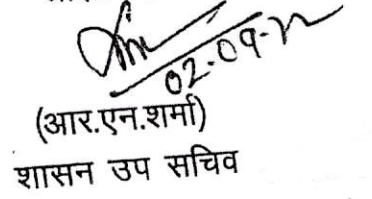 02-09-22
(आर.एन.शर्मा)
शासन उप सचिव